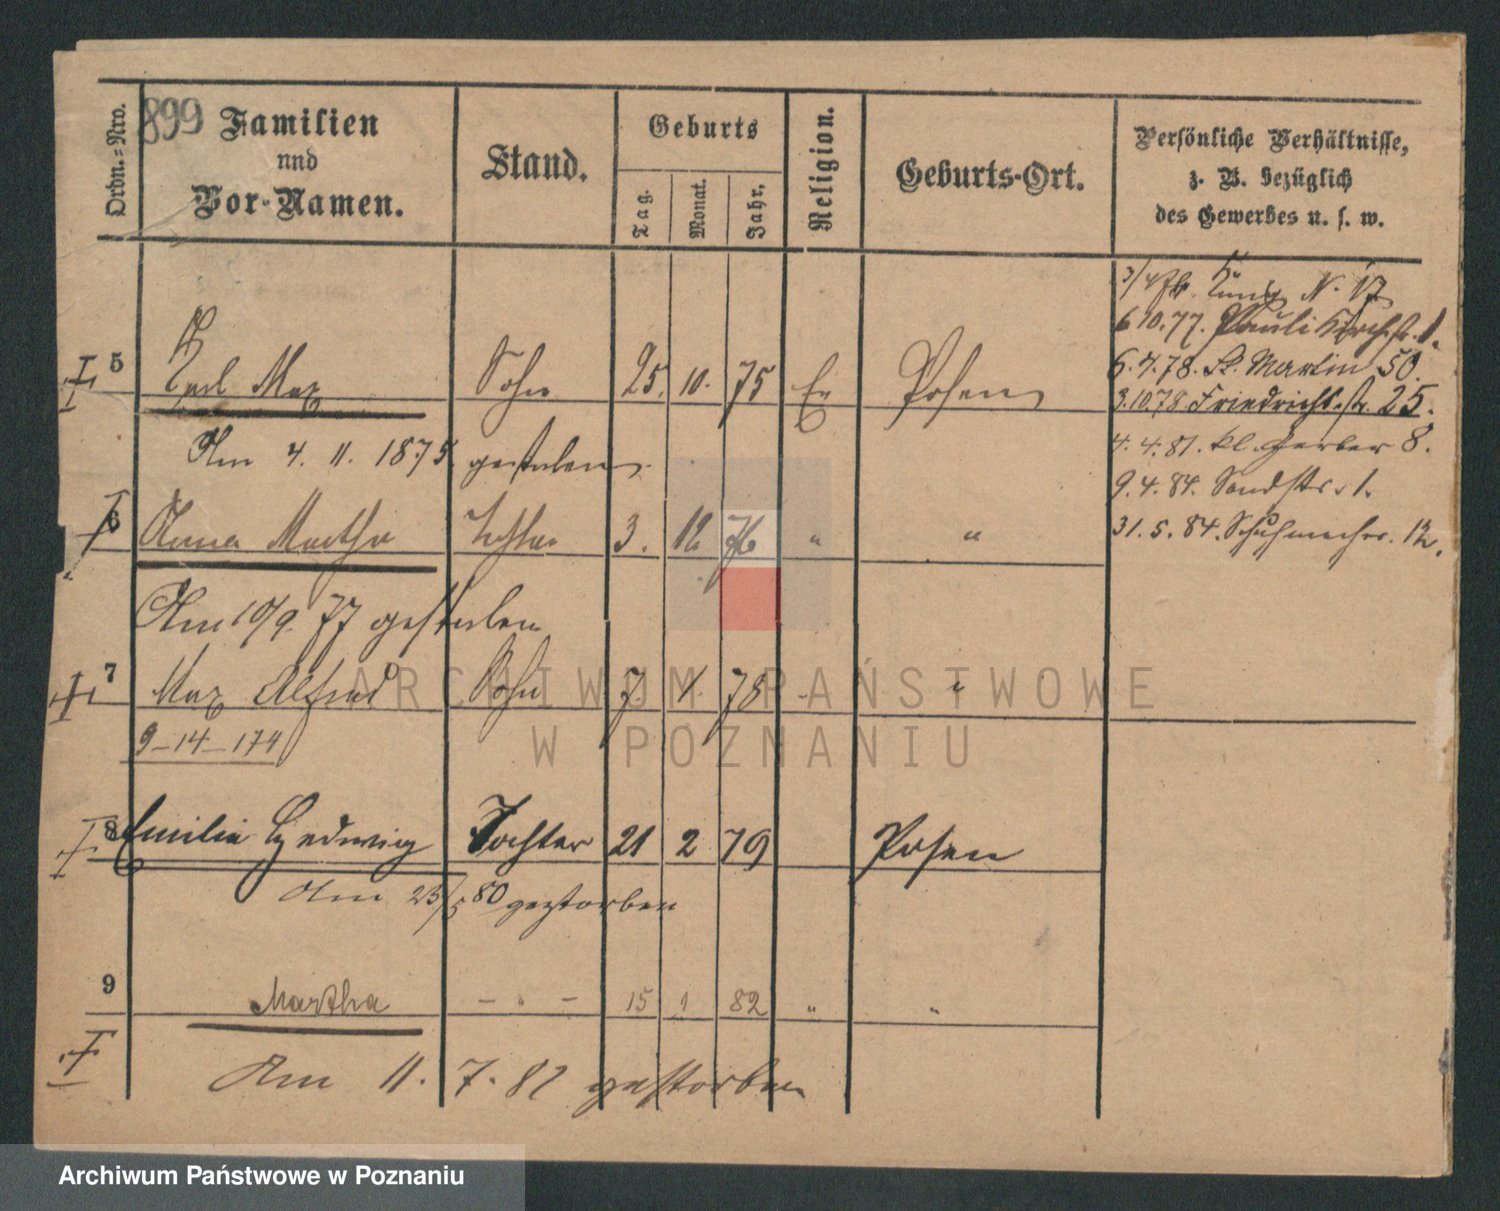 899
Ordn.-Nro.
Familien
und
Vor-Namen.
Stand.
Geburts
Tag.
Monat.
Jahr.
Religion.
Geburts-Ort.
Persönliche Verhältnisse,
z. B. bezüglich
des Gewerbes u. s. w.
N. 17
6.10.77. Pauli Kirchstr. 1.
5 Karl Max Sohn 25. 10. 75 Ev Posen
6.4.78. St. Martin 50.
3.10.78 Friedrichstr. 25.
Am 4. 11. 1875 gestorben.
4.4.81. kl. Gerber 8.
9.4.84. Sandstr. 1.
6 Anna Martha Tochter 3. 12. 76 " "
31.5.84. Schuhmacher. 12.
Am 10/9. 77 gestorben
7 Max Alfred Sohn 7. 1. 78 - "
9-14-174
8 Emilie Hedwig Tochter 21 2 79 Posen
Am 23/5 80 gestorben
9 Martha - " - 15 1 82 " "
Am 11. 7. 82 gestorben
ARCHIWUM PAŃSTWOWE
W POZNANIU
Archiwum Państwowe w Poznaniu